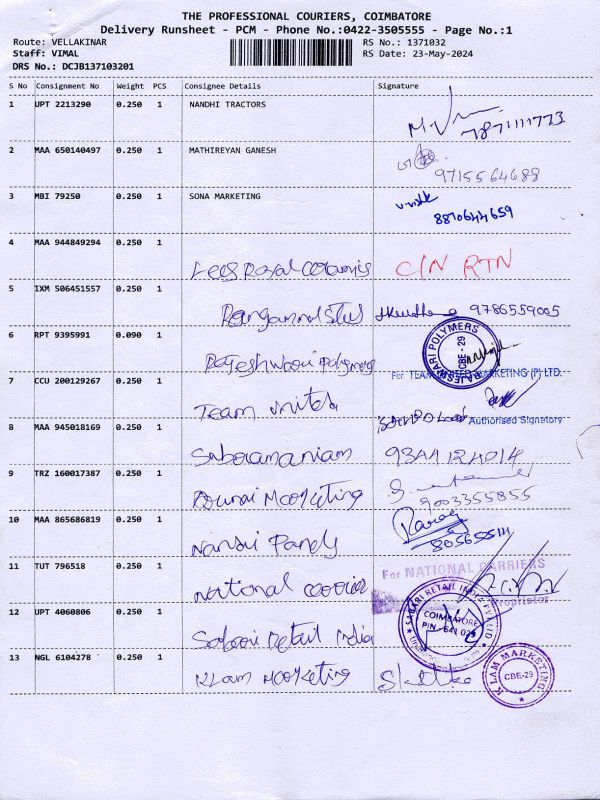 THE PROFESSIONAL COURIERS, COIMBATORE
Delivery Runsheet - PCM - Phone No.:0422-3505555 - Page No.:1
Route: VELLAKINAR RS No.: 1371032
Staff: VIMAL RS Date: 23-May-2024
DRS No.: DCJB137103201
S No Consignment No Weight PCS Consignee Details Signature
1 UPT 2213290 0.250 1 NANDHI TRACTORS
7871111773
2 MAA 650140497 0.250 1 MATHIREYAN GANESH
9715564688
3 MBI 79250 0.250 1 SONA MARKETING
8870644659
4 MAA 944849294 0.250 1
Lees Royal C/N RTN
5 IXM 506451557 0.250 1
9786559005
6 RPT 9395991 0.090 1
RAJESHWARI POLYMERS CBE - 29
Rajeshwari Polymers
For TEAM UNITED MARKETING (P) LTD.
7 CCU 200129267 0.250 1
Team United
Authorised Signatory
8 MAA 945018169 0.250 1
Subramaniam
9 TRZ 160017387 0.250 1
Marketing
9003355855
10 MAA 865686819 0.250 1
Nandu Pandy
11 TUT 796518 0.250 1
For NATIONAL CARRIERS
National courier
Proprietor
12 UPT 4060806 0.250 1
SABARI RETAIL INDIA PVT LTD
COIMBATORE
PIN - 641 029
Sabari Retail India
13 NGL 6104278 0.250 1
K LAM MARKETING CBE-29
K Lam Marketing